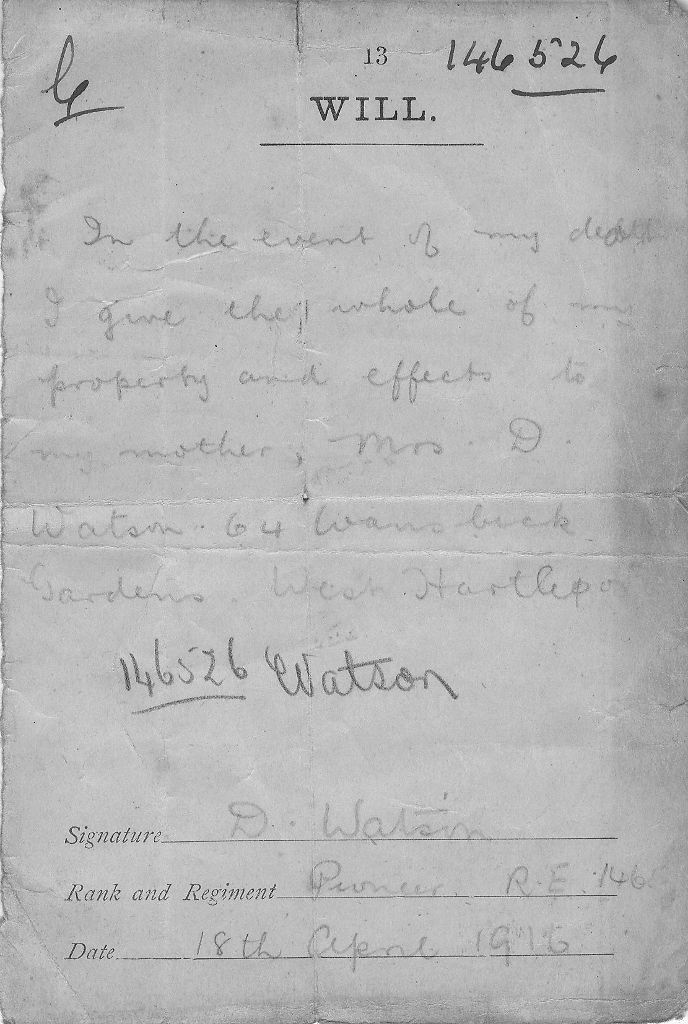 13 146526
G
WILL.
In the event of my death
I give the whole of my
property and effects to
my mother, Mrs. D.
Watson. 64 Wansbeck
Gardens. West Hartlepoo
146526 Watson
Signature D. Watson
Rank and Regiment Pioneer. R.E. 146
Date 18th April 1916